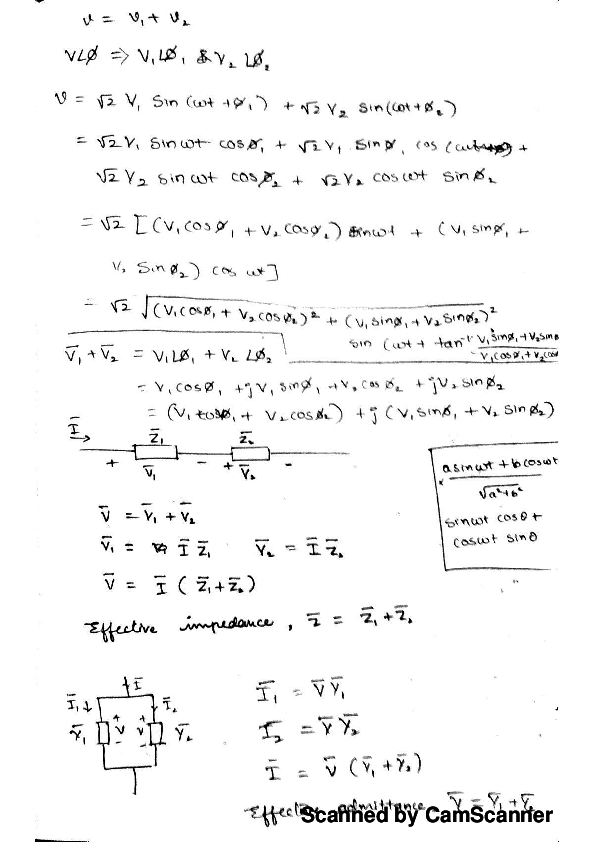 v = v₁ + v₂
V∠ø ⇒ V₁∠ø₁ & V₂ ∠ø₂
v = √2 V₁ Sin (ωt + ø₁) + √2 V₂ sin(ωt + ø₂)
= √2 V₁ sin ωt cos ø₁ + √2 V₁ sin ø₁ cos (ωt) +
√2 V₂ sin ωt cos ø₂ + √2 V₂ cos ωt sin ø₂
= √2 [(V₁ cos ø₁ + V₂ cos ø₂) sin ωt + (V₁ sin ø₁ +
V₂ Sin ø₂) cos ωt]
= √2 √(V₁ cos ø₁ + V₂ cos ø₂)² + (V₁ sin ø₁ + V₂ sin ø₂)²
sin (ωt + tan⁻¹ V₁ sin ø₁ + V₂ sin ø
V₁ cos ø₁ + V₂ cos
V̅₁ + V̅₂ = V₁∠ø₁ + V₂ ∠ø₂
= V₁ cos ø₁ + jV₁ sin ø₁ + V₂ cos ø₂ + jV₂ sin ø₂
= (V₁ cos ø₁ + V₂ cos ø₂) + j (V₁ sin ø₁ + V₂ sin ø₂)
I̅ Z̅₁ Z̅₂
+ V̅₁ - + V̅₂ -
a sin ωt + b cos ωt
√a²+b²
sin ωt cos θ +
cos ωt sin θ
V̅ = V̅₁ + V̅₂
V̅₁ = I̅ Z̅₁ V̅₂ = I̅ Z̅₂
V̅ = I̅ (Z̅₁ + Z̅₂)
Effective impedance, Z̅ = Z̅₁ + Z̅₂
I̅
I̅₁ I̅₂
Y̅₁ + V - + V - Y̅₂
I̅₁ = V̅ Y̅₁
I̅₂ = V̅ Y̅₂
I̅ = V̅ (Y̅₁ + Y̅₂)
Effective admittance Y̅ = Y̅₁ + Y̅₂
Scanned by CamScanner